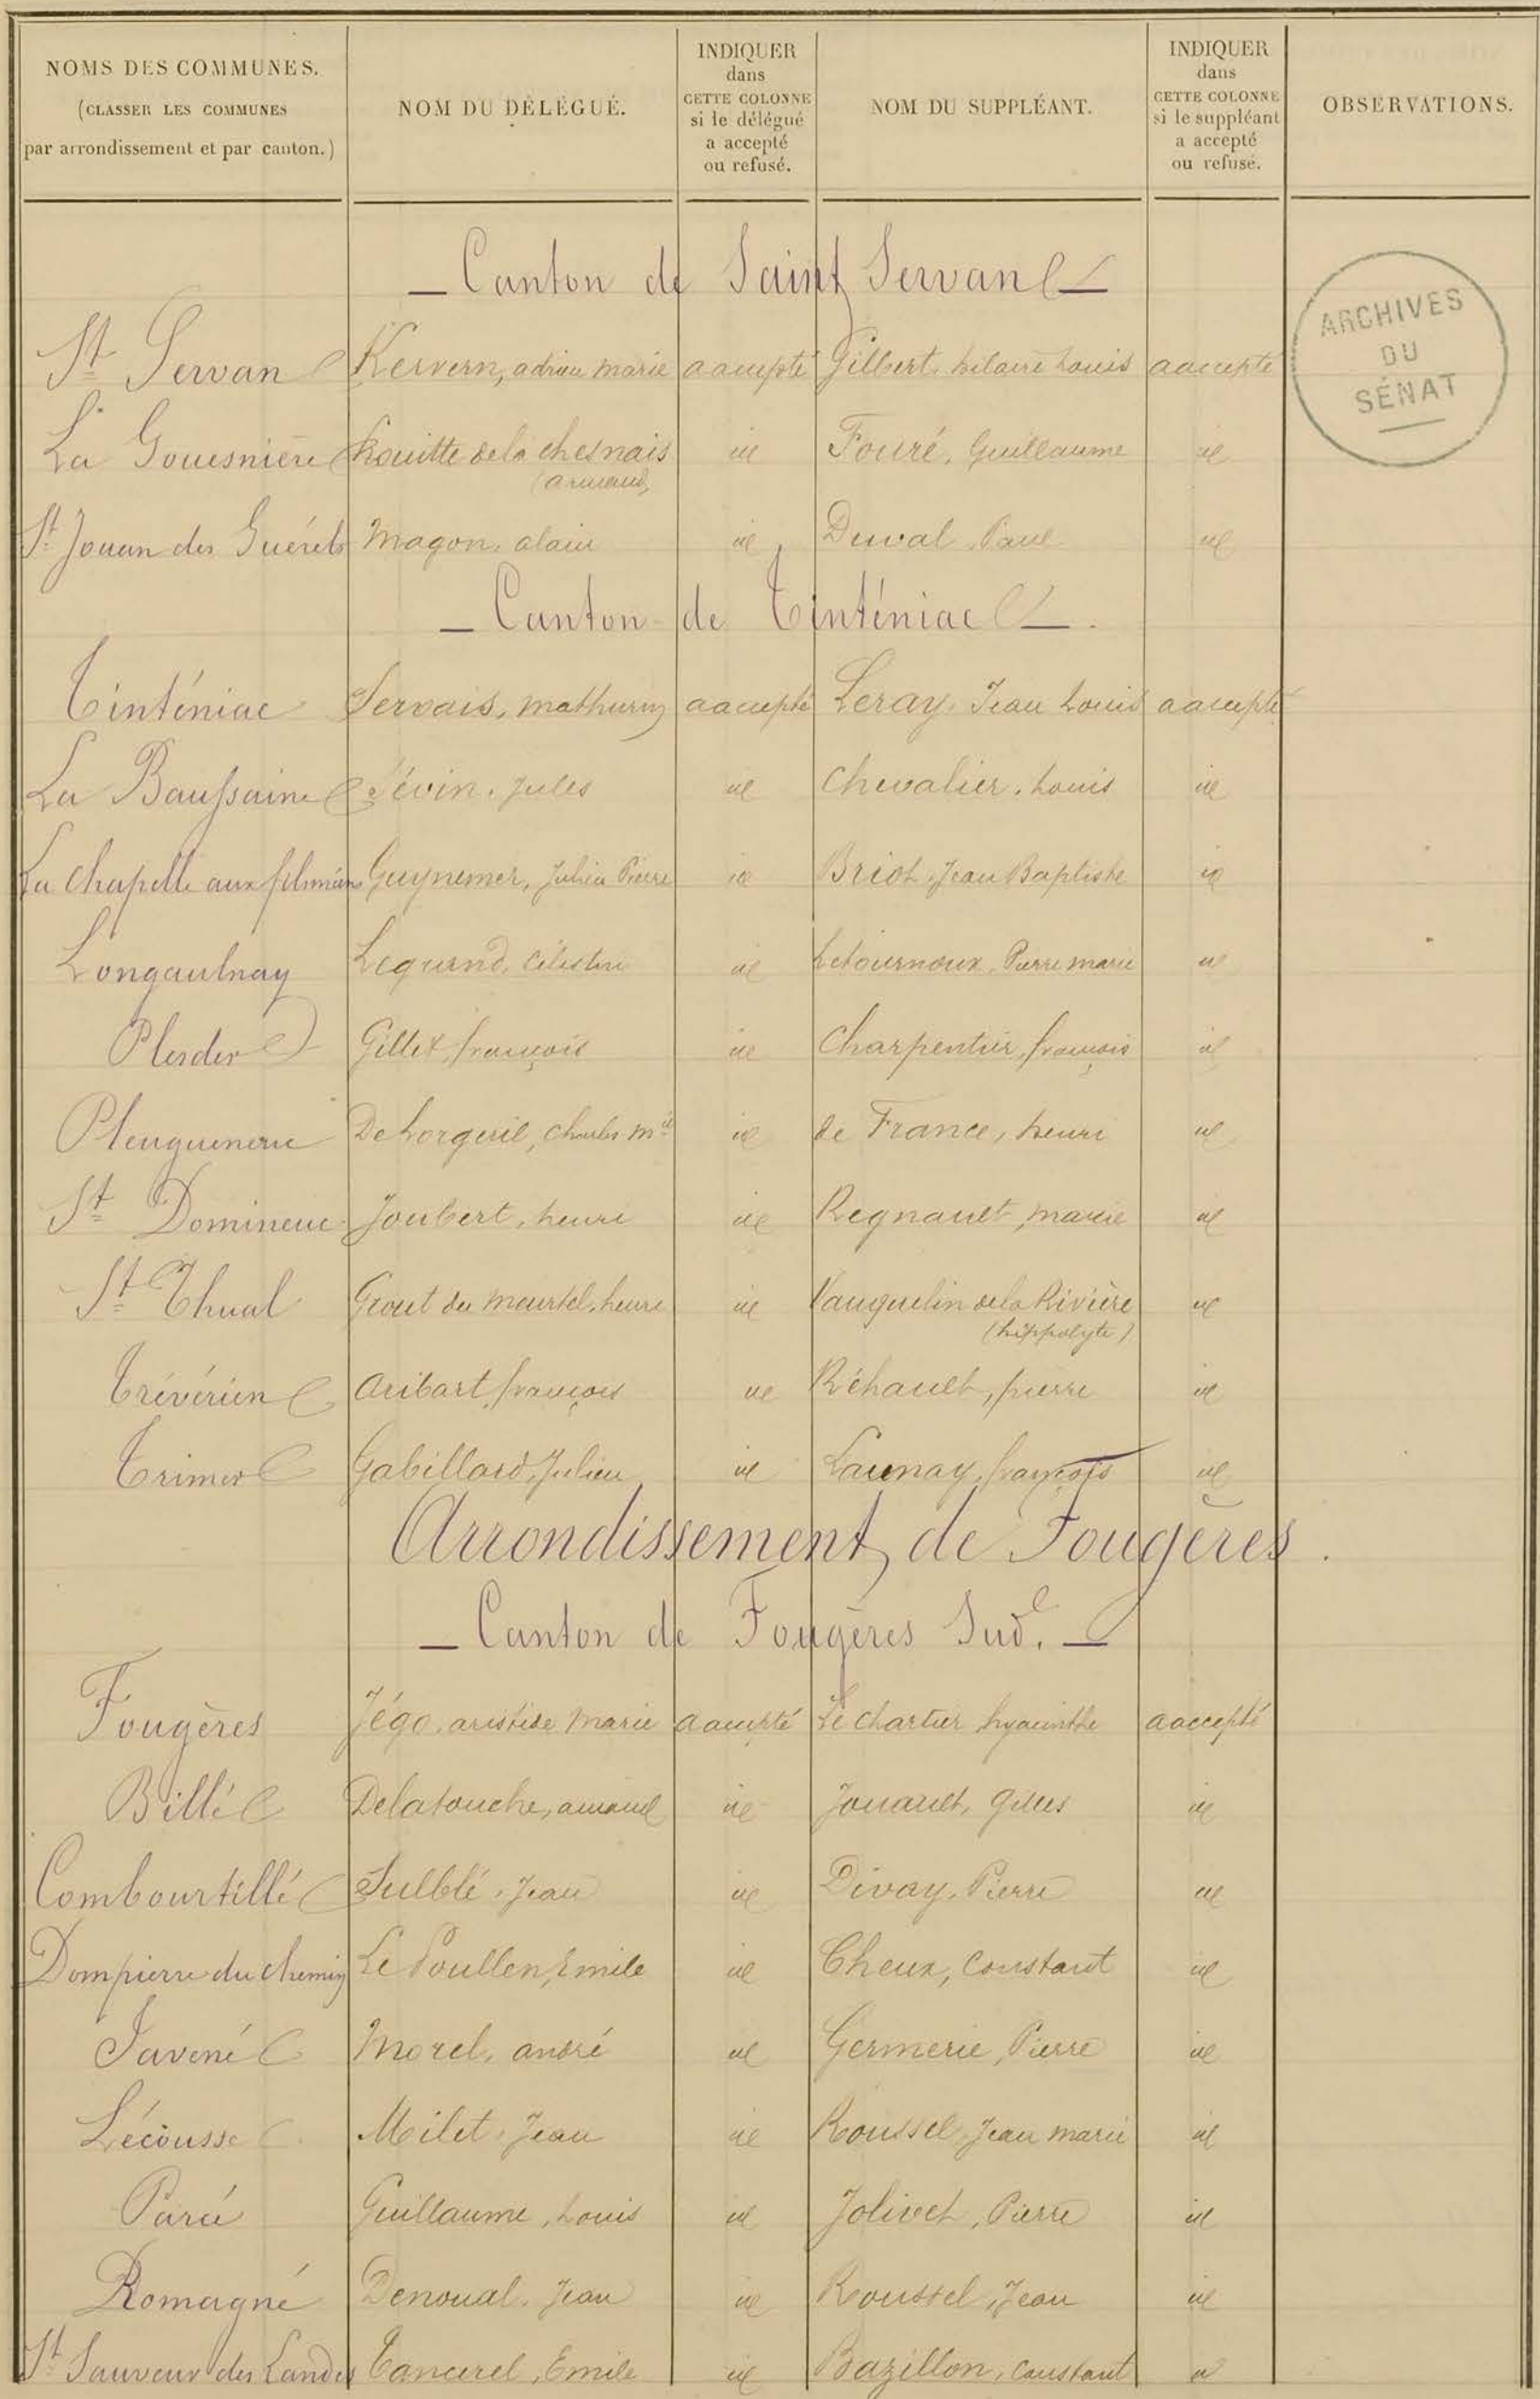 NOMS DES COMMUNES.
(CLASSER LES COMMUNES
par arrondissement et par canton.)
NOM DU DÉLÉGUÉ.
INDIQUER
dans
CETTE COLONNE
si le délégué
a accepté
ou refusé.
NOM DU SUPPLÉANT.
INDIQUER
dans
CETTE COLONNE
si le suppléant
a accepté
ou refusé.
OBSERVATIONS.
— Canton de Saint Servan —
ARCHIVES
DU
SÉNAT
St Servan Kervern, adrien marie a accepté Gilbert, hilaire Louis a accepté
La Gouesnière houitte de la chesnais id Fouré, Guillaume id
(armand)
St Jouan des Guérets Magon, alain id Duval, Paul id
— Canton de Tinténiac —
Tinténiac Servais, mathurin a accepté Leray, Jean Louis a accepté
La Baussaine Sévin, Jules id Chevalier, Louis id
La Chapelle aux filtzméens Guynemer, Julien Pierre id Briot, Jean Baptiste id
Longaulnay Legrand, Célestin id Letournoux, Pierre marie id
Plesder Gillet, françois id Charpentier, françois id
Pleugueneuc De Lorgeril, Charles Mie id de France, henri id
St Domineuc Joubert, henri id Regnault, marie id
St Thual Grout du Meurtel, henri id Vauquelin de la Rivière id
(hippolyte)
Trévérien Aribart, françois id Réhault, pierre id
Trimer Gabillard, Julien id Launay, françois id
Arrondissement de Fougères.
— Canton de Fougères Sud. —
Fougères Jégo, aristide Marie a accepté Le Chartier hyacinthe a accepté
Billé Delatouche, amand id Jouault, Gilles id
Combourtillé Sulblé, Jean id Divay, Pierre id
Dompierre du chemin Le Poullen, Emile id Cheux, Constant id
Javené Morel, andré id Germerie, Pierre id
Lécousse Milet, Jean id Roussel, Jean marie id
Parcé Guillaume, Louis id Jolivet, Pierre id
Romagné Denoual, Jean id Roussel, Jean id
St Sauveur des Landes Tancrel, Emile id Bazillon, Constant id